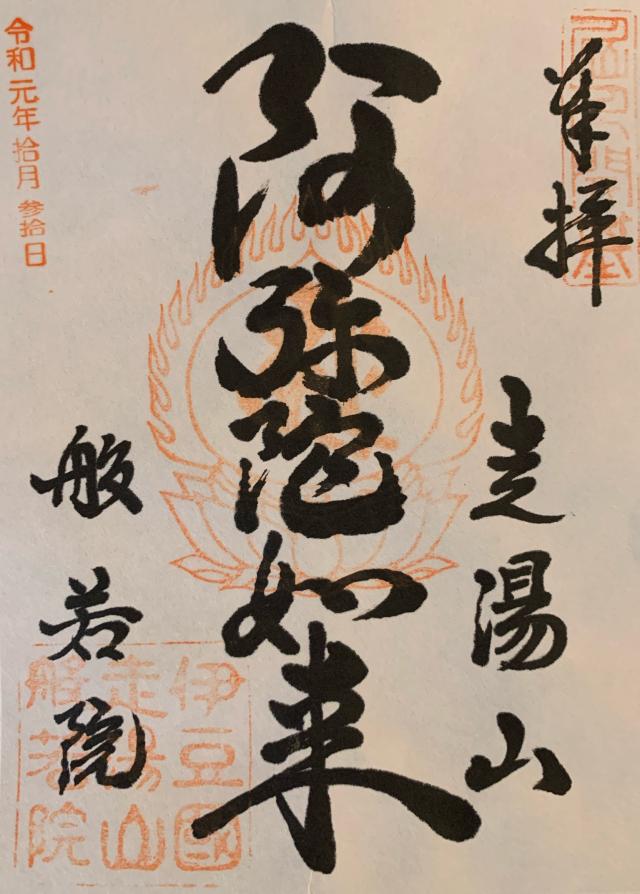 奉拝
走湯山
阿弥陀如来
般若院
令和元年拾月参拾日
伊豆國
走湯山
般若院